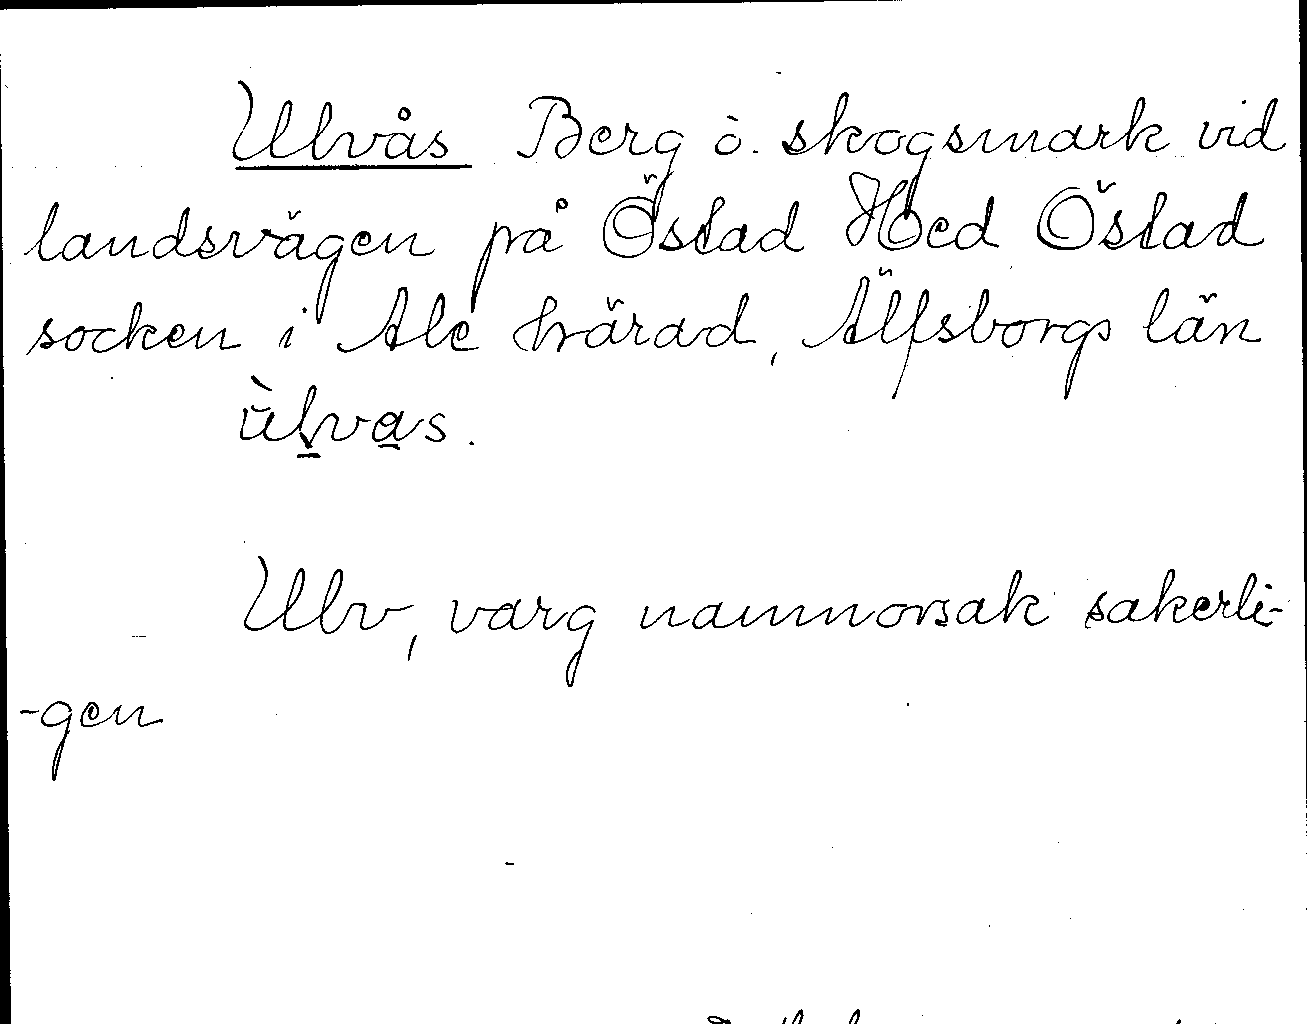 Ulvås Berg ö. skogsmark vid
landsvägen på Östad Hed Östad
socken i Ale härad, Älfsborgs län
ùlvas.
Ulv, varg namnorsak sakerli-
-gen